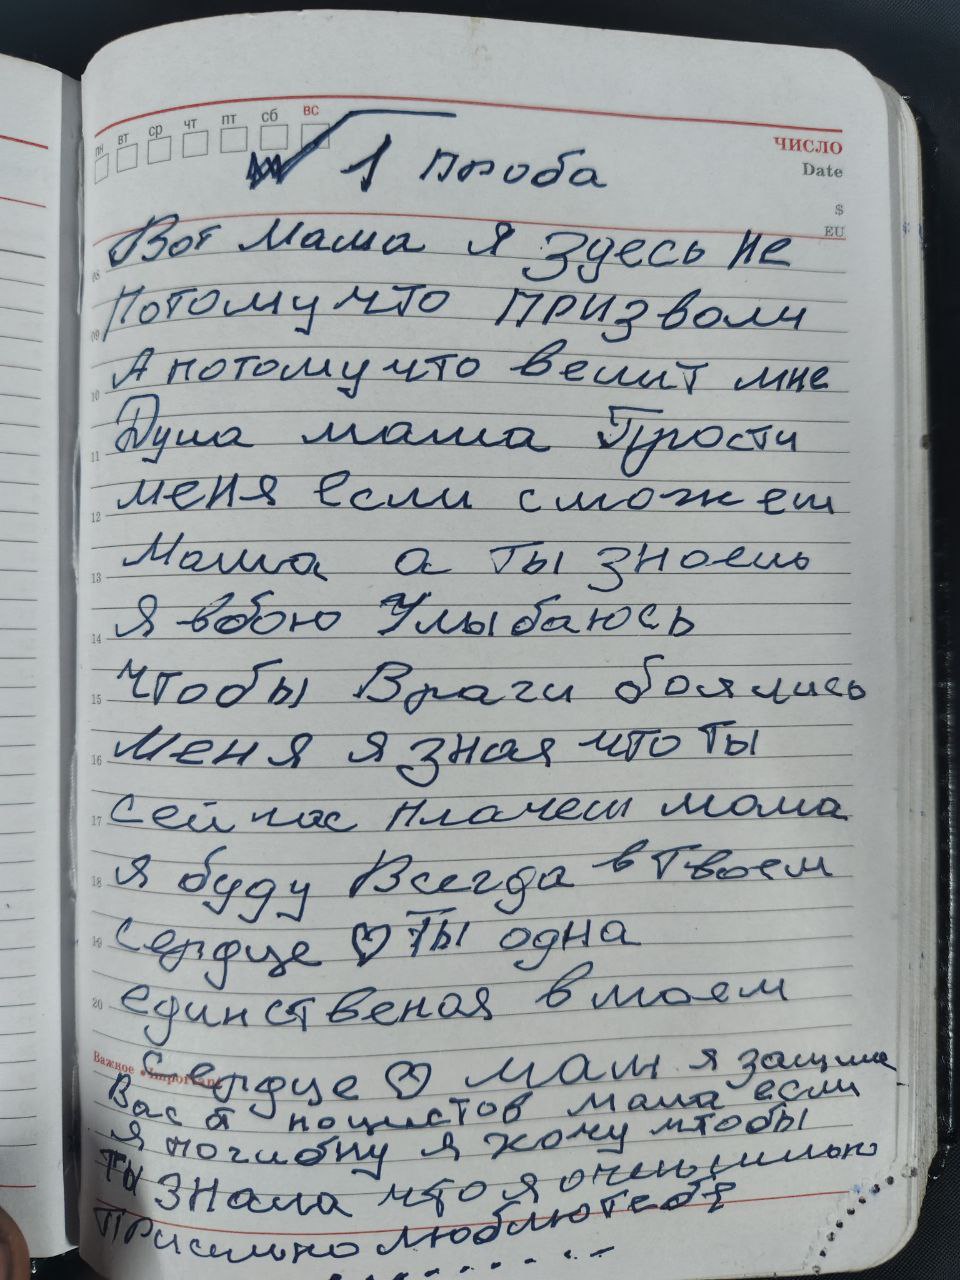 пн вт ср чт пт сб вс
ЧИСЛО
Date
1 проба
$
EU
Вот мама я здесь не
08
потому что призвали
09
А потому что велит мне
10
Душа мама Прости
11
меня если сможеш
12
Мама а ты знаешь
13
Я вбою Улыбаюсь
14
Чтобы Враги боялись
15
Меня я зная что ты
16
сейчас плачеш мама
17
я буду Всегда в твоем
18
сердце ♡ Ты одна
19
единственая в моем
20
Важное • Important
сердце ♡ Мам я защища
Вас от нацистов мама если
я погибну я хочу чтобы
ты знала что я очень сильно
Присильно люблю тебя